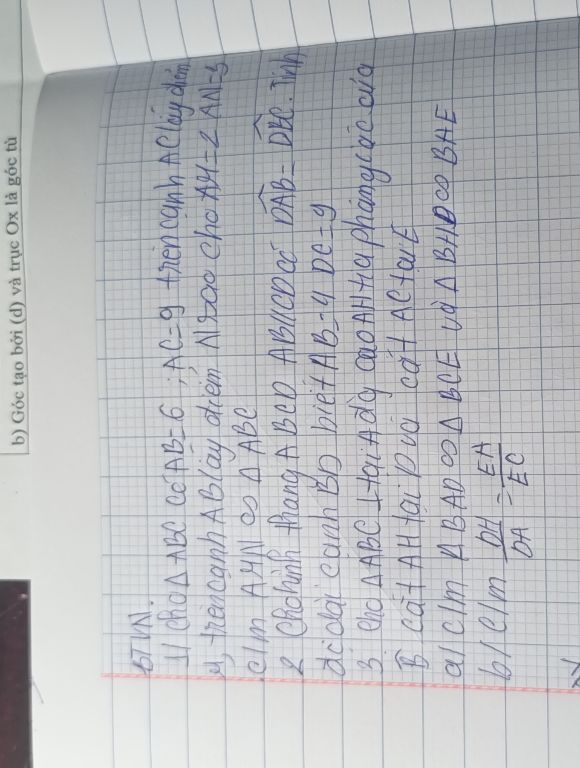 b) Góc tạo bởi (d) và trục Ox là góc tù
BTVN.
1/ cho Δ ABC có AB=6 ; AC=9 trên cạnh AC lấy điểm
M, trên cạnh AB lấy điểm N sao cho AM=2 AN=3
c/m AMN ∽ Δ ABC
2 Cho hình thang ABCD AB//CD có DAB = DBC. Tính
độ dài cạnh BD biết AB=4 DC=9
3. cho Δ ABC ⊥ tại A đg cao AH tia phân giác của
B cắt AH tại D và cắt AC tại E
a/ c/m Δ BAD ∽ Δ BCE và Δ BHD ∽ BAE
b/ c/m DH/DA = EA/EC